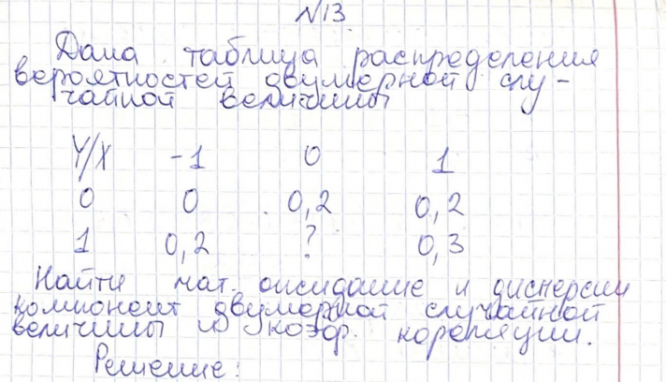 N13
Дана таблица распределения
вероятностей двумерной слу-
чайной величины
Y/X -1 0 1
0 0 0,2 0,2
1 0,2 ? 0,3
Найти мат. ожидание и дисперсии
компонент двумерной случайной
величины и коэф. корреляции.
Решение: